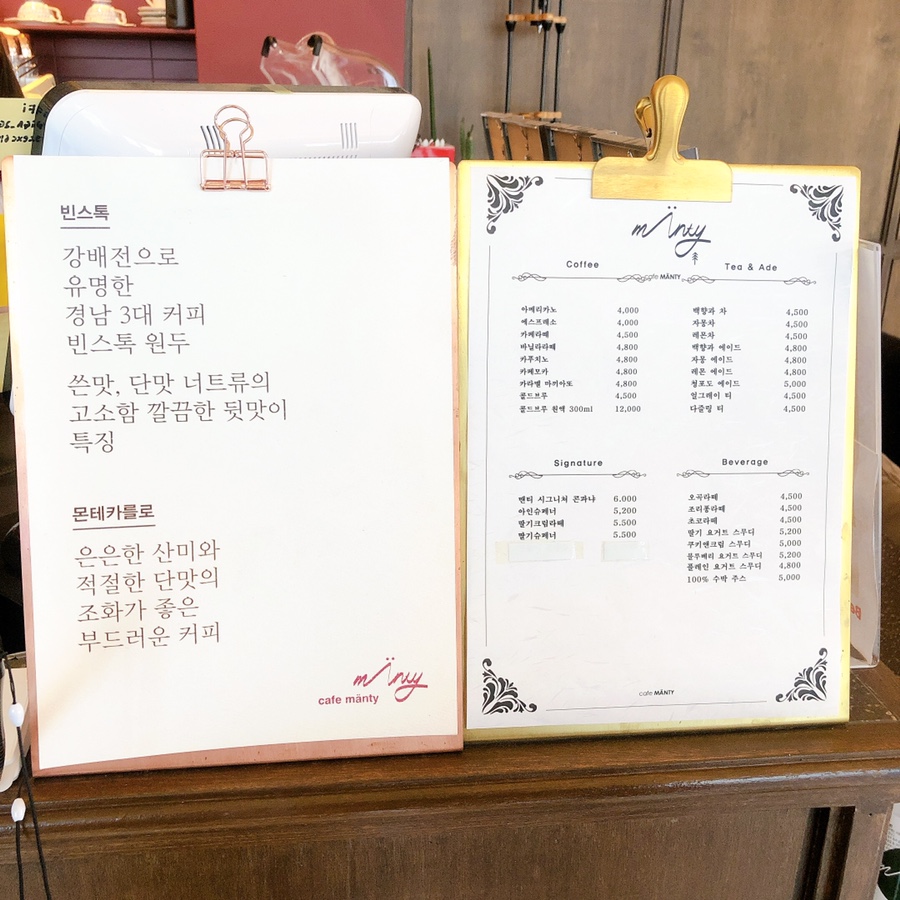 빈스톡
강배전으로
유명한
경남 3대 커피
빈스톡 원두
쓴맛, 단맛 너트류의
고소함 깔끔한 뒷맛이
특징
몬테카를로
은은한 산미와
적절한 단맛의
조화가 좋은
부드러운 커피
mänty
cafe mänty
mänty
cafe MÄNTY
Coffee
아메리카노 4,000
에스프레소 4,000
카페라떼 4,500
바닐라라떼 4,800
카푸치노 4,800
카페모카 4,800
카라멜 마끼아또 4,800
콜드브루 4,500
콜드브루 원액 300ml 12,000
Tea & Ade
백향과 차 4,500
자몽차 4,500
레몬차 4,500
백향과 에이드 4,800
자몽 에이드 4,800
레몬 에이드 4,800
청포도 에이드 5,000
얼그레이 티 4,500
다즐링 티 4,500
Signature
맨티 시그니처 콘파나 6.000
아인슈페너 5,200
딸기크림라떼 5.500
딸기슈페너 5.500
Beverage
오곡라떼 4,500
조리퐁라떼 4,500
초코라떼 4,500
딸기 요거트 스무디 5,200
쿠키앤크림 스무디 5,000
블루베리 요거트 스무디 5,200
플레인 요거트 스무디 4,800
100% 수박 주스 5,000
cafe MÄNTY